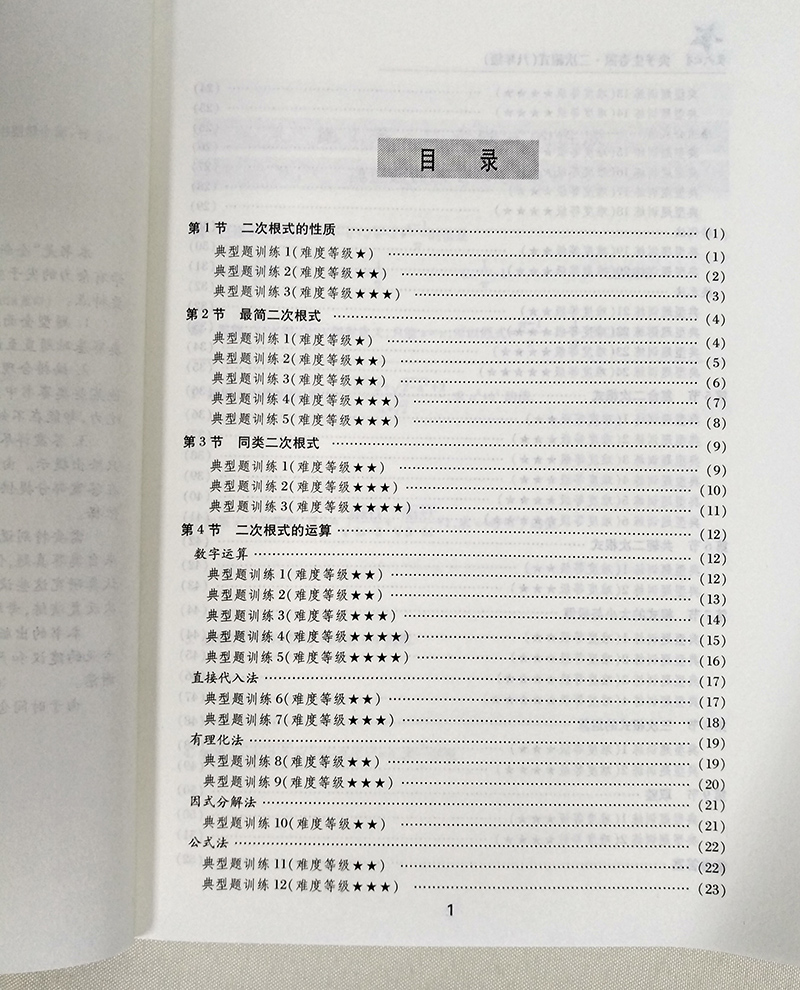 目 录
第1节 二次根式的性质 ……………………………………………… (1)
典型题训练1(难度等级★) ……………………………………………… (1)
典型题训练2(难度等级★★) ……………………………………………… (2)
典型题训练3(难度等级★★★) ……………………………………………… (3)
第2节 最简二次根式 ……………………………………………… (4)
典型题训练1(难度等级★) ……………………………………………… (4)
典型题训练2(难度等级★★) ……………………………………………… (5)
典型题训练3(难度等级★★) ……………………………………………… (6)
典型题训练4(难度等级★★★) ……………………………………………… (7)
典型题训练5(难度等级★★★) ……………………………………………… (8)
第3节 同类二次根式 ……………………………………………… (9)
典型题训练1(难度等级★★) ……………………………………………… (9)
典型题训练2(难度等级★★★) ……………………………………………… (10)
典型题训练3(难度等级★★★★) ……………………………………………… (11)
第4节 二次根式的运算 ……………………………………………… (12)
数字运算 ……………………………………………… (12)
典型题训练1(难度等级★★) ……………………………………………… (12)
典型题训练2(难度等级★★) ……………………………………………… (13)
典型题训练3(难度等级★★★) ……………………………………………… (14)
典型题训练4(难度等级★★★★) ……………………………………………… (15)
典型题训练5(难度等级★★★★) ……………………………………………… (16)
直接代入法 ……………………………………………… (17)
典型题训练6(难度等级★★) ……………………………………………… (17)
典型题训练7(难度等级★★★) ……………………………………………… (18)
有理化法 ……………………………………………… (19)
典型题训练8(难度等级★★) ……………………………………………… (19)
典型题训练9(难度等级★★★) ……………………………………………… (20)
因式分解法 ……………………………………………… (21)
典型题训练10(难度等级★★) ……………………………………………… (21)
公式法 ……………………………………………… (22)
典型题训练11(难度等级★★) ……………………………………………… (22)
典型题训练12(难度等级★★★) ……………………………………………… (23)
1